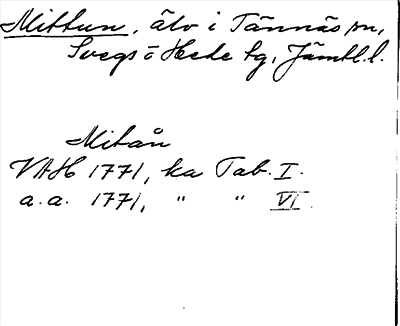 Mittun, älv i Tännäs sn,
Svegs o Hede tg, Jämtl. l.
Mitån
VAH 1771, ka Tab. I.
a.a. 1771, " " VI.